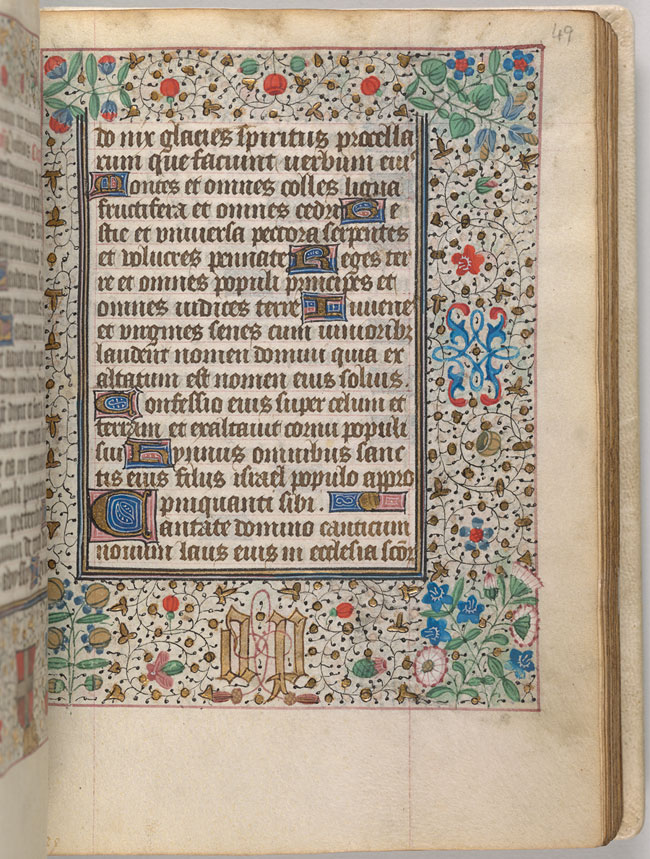 49
do nix glacies spiritus procella
rum que faciunt uerbum eiꝰ
Montes et omnes colles ligna
fructifera et omnes cedri Be
stie et vniuersa peccora serpentes
et volucres pennate Reges ter
re et omnes populi principes et
omnes iudices terre Iuuene
et virgines senes cum iunioribꝫ
laudent nomen domini quia ex
altatum est nomen eius solius.
Confessio eius super celum et
terram et exaltauit cornu populi
sui Hymnus omnibus sanc
tis eius filiis israel populo appro
pinquanti sibi.
Cantate domino canticum
nouum laus eius in ecclesia scōr